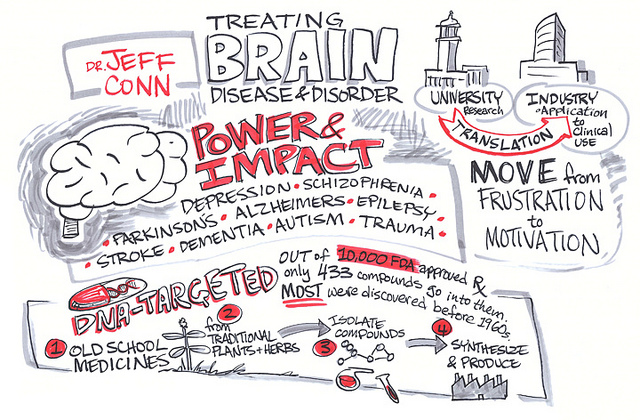 TREATING
BRAIN
DISEASE & DISORDER
DR. JEFF
CONN
UNIVERSITY
Research
INDUSTRY
Application
to
Clinical
USE
TRANSLATION
MOVE from
FRUSTRATION
to
MOTIVATION
POWER &
IMPACT
DEPRESSION • SCHIZOPHRENIA •
• PARKINSON'S • ALZHEIMERS • EPILEPSY •
• STROKE • DEMENTIA • AUTISM • TRAUMA •
DNA-TARGETED
OUT of 10,000 FDA approved Rx
only 433 compounds go into them.
MOST were discovered before 1960s.
1 OLD SCHOOL
MEDICINES
2
from
TRADITIONAL
PLANTS + HERBS
ISOLATE
COMPOUNDS
3
4
SYNTHESIZE
& PRODUCE